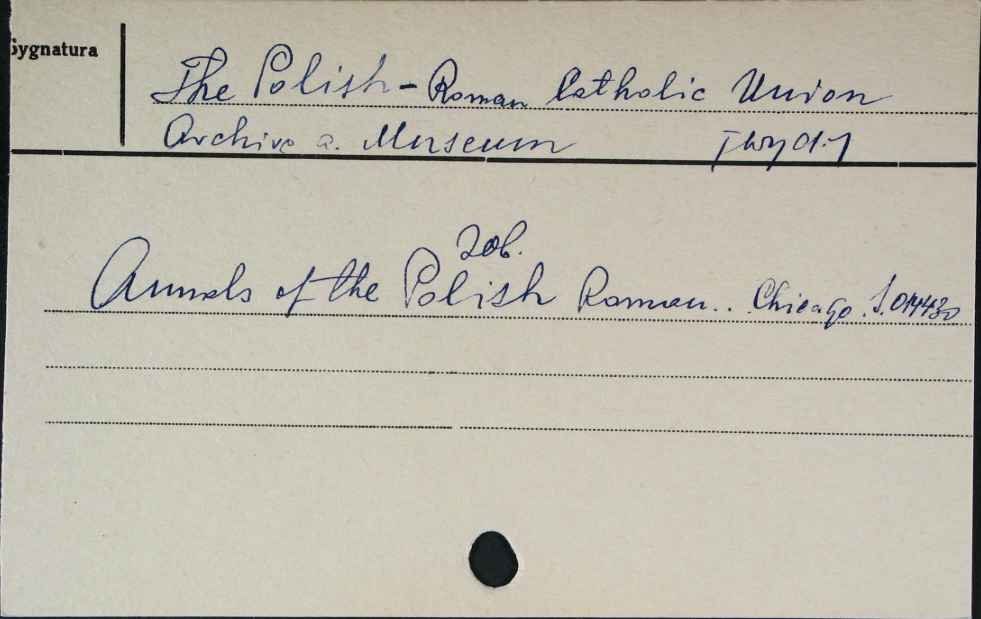 Sygnatura
The Polish-Roman Catholic Union
Archive a. Museum
zob.
Annals of the Polish Roman.. Chicago. J.014430